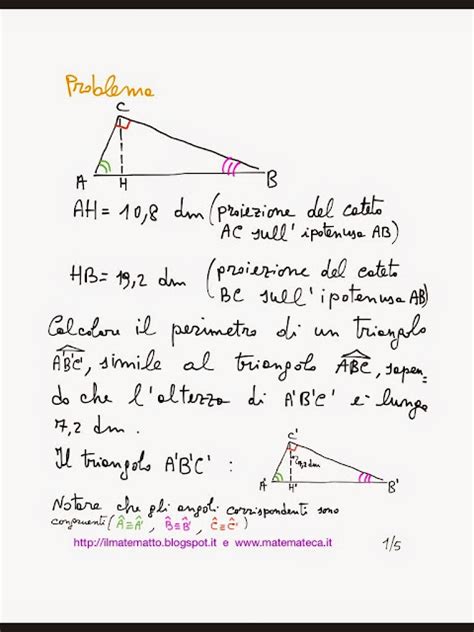 Problema
C
A H B
AH = 10,8 dm (proiezione del cateto
AC sull'ipotenusa AB)
HB = 19,2 dm (proiezione del cateto
BC sull'ipotenusa AB)
Calcolare il perimetro di un triangolo
A'B'C', simile al triangolo ABC, sapen-
do che l'altezza di A'B'C' è lunga
7,2 dm.
Il triangolo A'B'C' :
C'
7,2 dm
A' H' B'
Notare che gli angoli corrispondenti sono
congruenti (Â≅Â', B̂≅B̂', Ĉ≅Ĉ')
http://ilmatematto.blogspot.it e www.matemateca.it
1/5